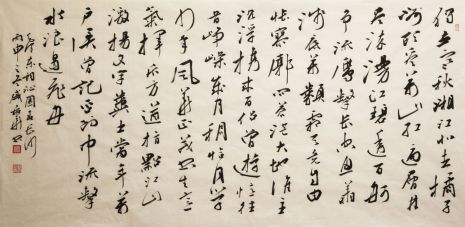 独立寒秋湘江北去橘子
洲头看万山红遍层林
尽染漫江碧透百舸
争流鹰击长空鱼翔
浅底万类霜天竞自由
怅寥廓问苍茫大地谁主
沉浮携来百侣曾游忆往
昔峥嵘岁月稠恰同学
少年风华正茂书生意
气挥斥方遒指点江山
激扬文字粪土当年万
户侯曾记否到中流击
水浪遏飞舟
毛泽东词沁园春长沙
丙申之